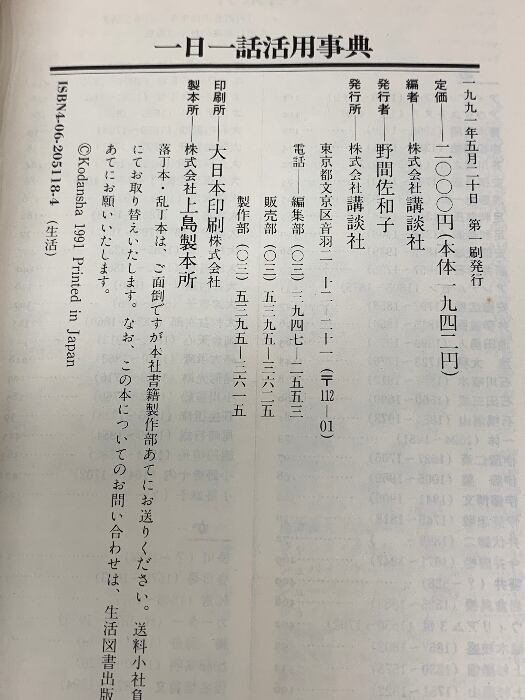 一日一話活用事典
一九九一年五月二十日　第一刷発行
定価――二〇〇〇円（本体一九四二円）
編者――株式会社講談社
発行者――野間佐和子
発行所――株式会社講談社
東京都文京区音羽二―十二―二十一（〒112―01）
電話――編集部（〇三）三九四七―二五五三
販売部（〇三）五三九五―三六二五
製作部（〇三）五三九五―三六一五
印刷所――大日本印刷株式会社
製本所――株式会社上島製本所
落丁本・乱丁本は、ご面倒ですが本社書籍製作部あてにお送りください。送料小社負
にてお取り替えいたします。なお、この本についてのお問い合わせは、生活図書出版
あてにお願いいたします。
©Kodansha 1991 Printed in Japan
ISBN4-06-205118-4　（生活）